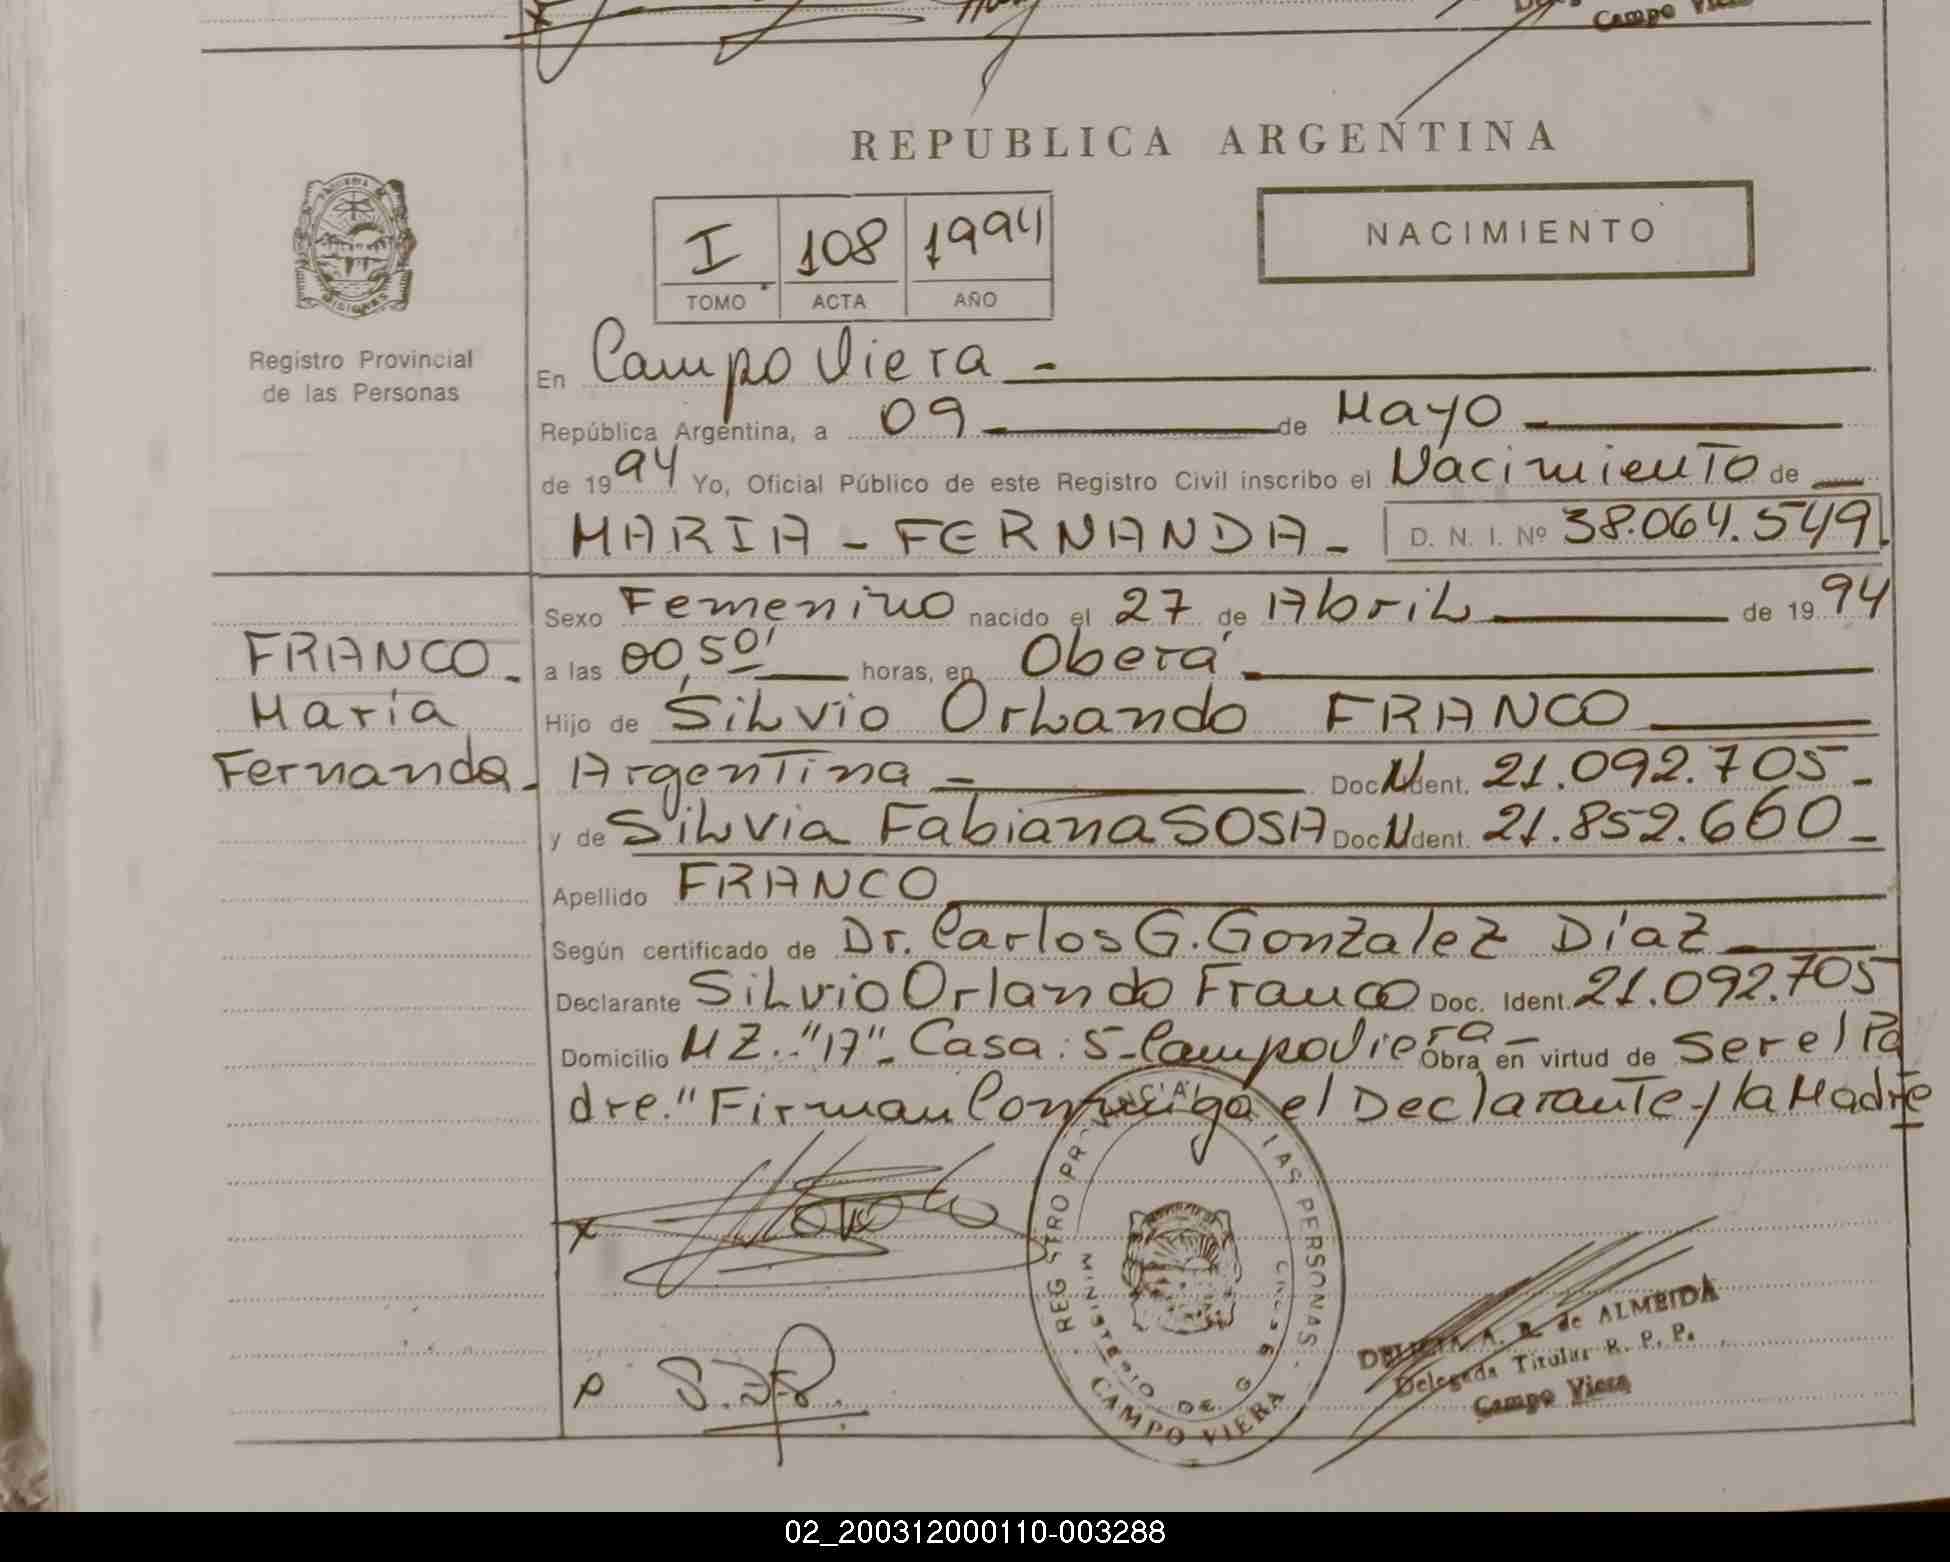 Campo Viera
REPUBLICA ARGENTINA
I 108 1994
TOMO ACTA AÑO
NACIMIENTO
Registro Provincial
de las Personas
En Campo Viera -
República Argentina, a 09 de Mayo
de 1994 Yo, Oficial Público de este Registro Civil inscribo el Nacimiento de
MARIA - FERNANDA - D. N. I. Nº 38.064.549
Sexo Femenino nacido el 27 de Abril de 1994
FRANCO -
María
Fernanda -
a las 00,50' horas, en Oberá
Hijo de Silvio Orlando FRANCO
Argentina - Doc. Ident. 21.092.705 -
y de Silvia Fabiana SOSA Doc. Ident. 21.852.660 -
Apellido FRANCO
Según certificado de Dr. Carlos G. Gonzalez Díaz
Declarante Silvio Orlando Franco Doc. Ident. 21.092.705
Domicilio MZ. "17" - Casa: 5 - Campo Viera - Obra en virtud de Ser el Pa
dre." Firman Conmigo el Declarante y la Madre
REGISTRO PROVINCIAL DE LAS PERSONAS
MINISTERIO DE G
CAMPO VIERA
DELICIA A. R. de ALMEIDA
Delegada Titular R. P. P.
Campo Viera
02_200312000110-003288